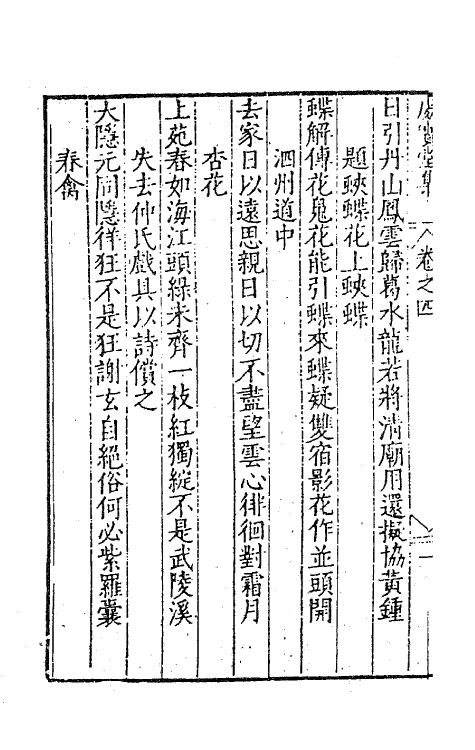 處實堂集 卷之四
日引丹山鳳雲歸葛水龍若將清廟用還擬協黃鍾
題蛺蝶花上蛺蝶
蝶解傳花鬼花能引蝶來蝶疑雙宿影花作並頭開
泗州道中
去家日以遠思親日以切不盡望雲心徘徊對霜月
杏花
上苑春如海江頭綠未齊一枝紅獨綻不是武陵溪
失去仲氏戲具以詩償之
大隱元同隱徉狂不是狂謝玄自絕俗何必紫羅囊
春禽